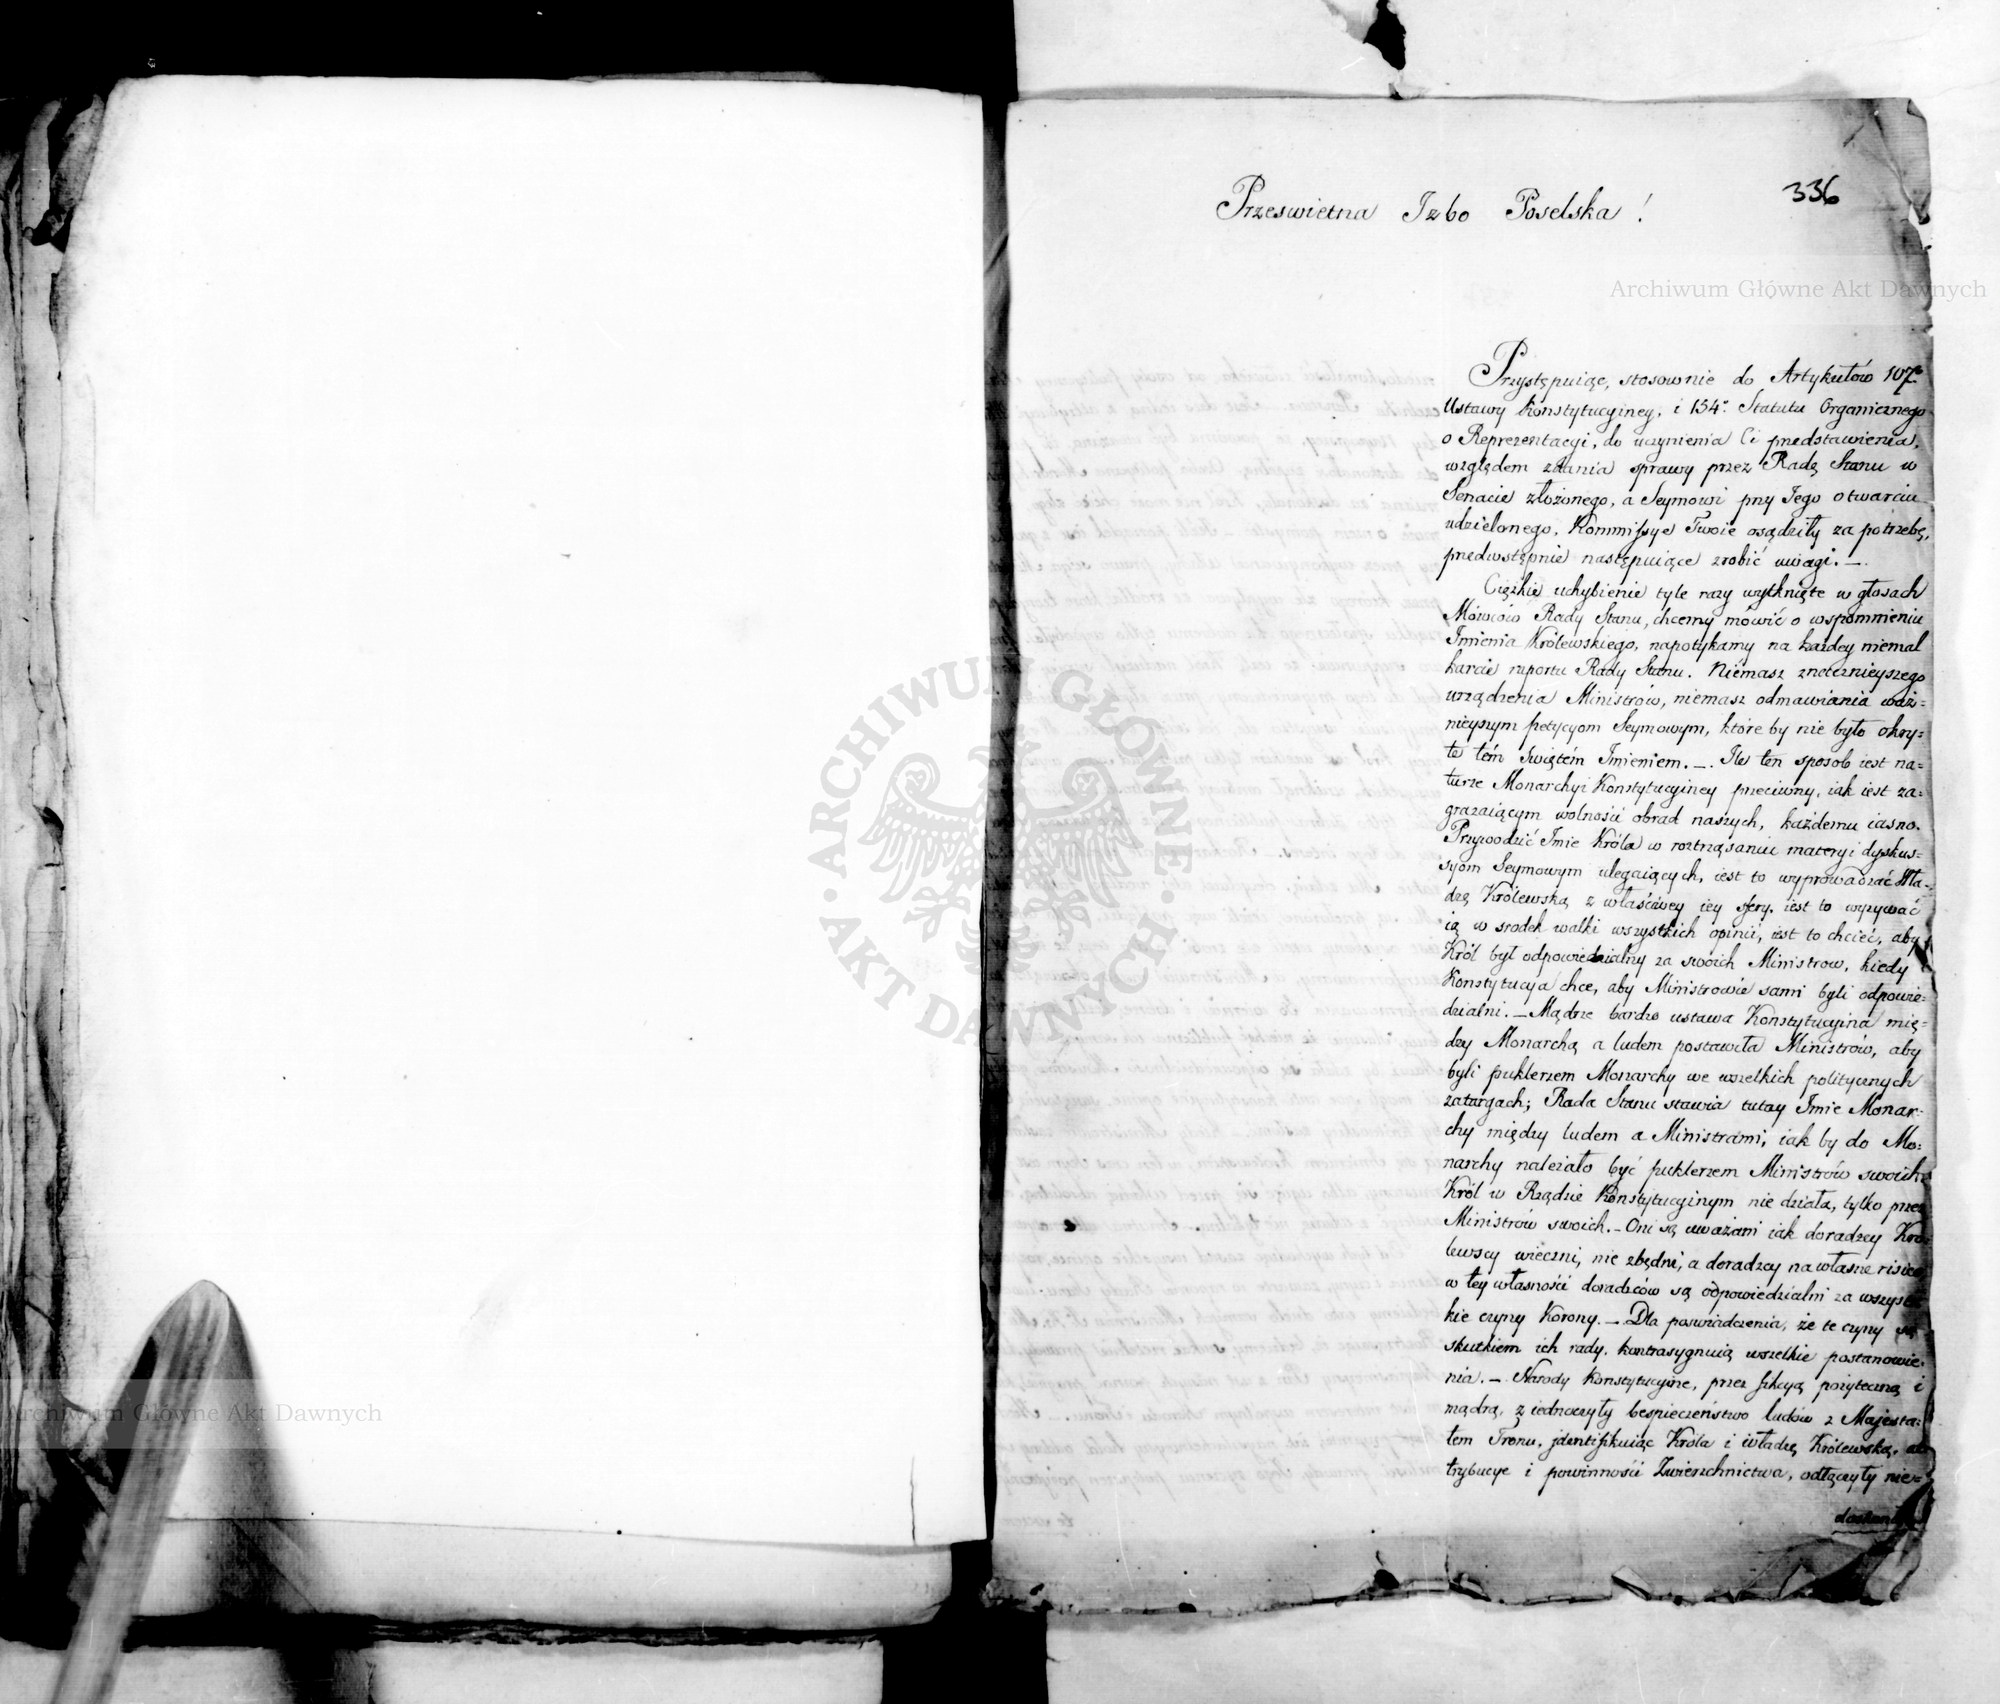 336
Przeswietna Izbo Poselska!
Archiwum Główne Akt Dawnych
Przystępuiąc, stosownie do Artykułów 107°
Ustawy Konstytucyiney, i 154°. Statutu Organicznego
o Reprezentacyi, do uczynienia Ci przedstawienia,
względem zdania sprawy przez Radę Stanu w
Senacie złożonego, a Seymowi przy Jego otwarciu
udzielonego, Kommissye Twoie osądziły za potrzebę,
przedwstępnie następuiące zrobić uwagi. —.
Ciężkie uchybienie tyle razy wytknięte w głosach
Mówców Rady Stanu, chcemy mówić o wspomnieniu
Imienia Królewskiego, napotykamy na każdey niemal
karcie raportu Rady Stanu. Niemasz znacznieyszego
urządzenia Ministrów, niemasz odmawiania waż=
nieyszym petycyom Seymowym, które by nie było okry=
te tém świętém Imieniem. —. Ile ten sposob iest na=
turze Monarchyi Konstytucyiney przeciwny, iak iest za=
grażaiącym wolności obrad naszych, każdemu iasno.
Przywodzić Imie Króla w roztrząsaniu materyi dyskus=
syom Seymowym ulegaiących, iest to wyprowadzać Wła=
dzę Królewską z właściwey iey sfery, iest to wyzywać
ią w srodek walki wszystkich opinii, iest to chcieć, aby
Król był odpowiedzialny za swoich Ministrow, kiedy
Konstytucya chce, aby Ministrowie sami byli odpowie=
dzialni. — Mądrze bardzo ustawa Konstytucyina mię=
dzy Monarchą a ludem postawiła Ministrów, aby
byli puklerzem Monarchy we wszelkich politycznych
zatargach; Rada Stanu stawia tutay Imie Monar=
chy między ludem a Ministrami, iak by do Mo=
narchy należało być puklerzem Ministrów swoich
Król w Rządzie Konstytucyinym nie działa, tylko przez
Ministrów swoich. — Oni są uważani iak doradzcy Kró=
lewscy wieczni, nie zbędni, a doradzcy na własne risico
w tey własności doradzców są odpowiedzialni za wszyst=
kie czyny Korony. — Dla poswiadczenia, że te czyny są
skutkiem ich rady, kontrasygnuią wszelkie postanowie=
nia. — Narody Konstytucyine, przez fikcyą pożyteczną i
mądrą, ziednoczyły bespieczeństwo ludów z Majesta=
tem Tronu, identifikuiąc Króla i władzę Królewską, at
trybucye i powinności Zwierzchnictwa, odłączyły nie=
Archiwum Główne Akt Dawnych
ARCHIWUM GŁÓWNE · AKT DAWNYCH ·